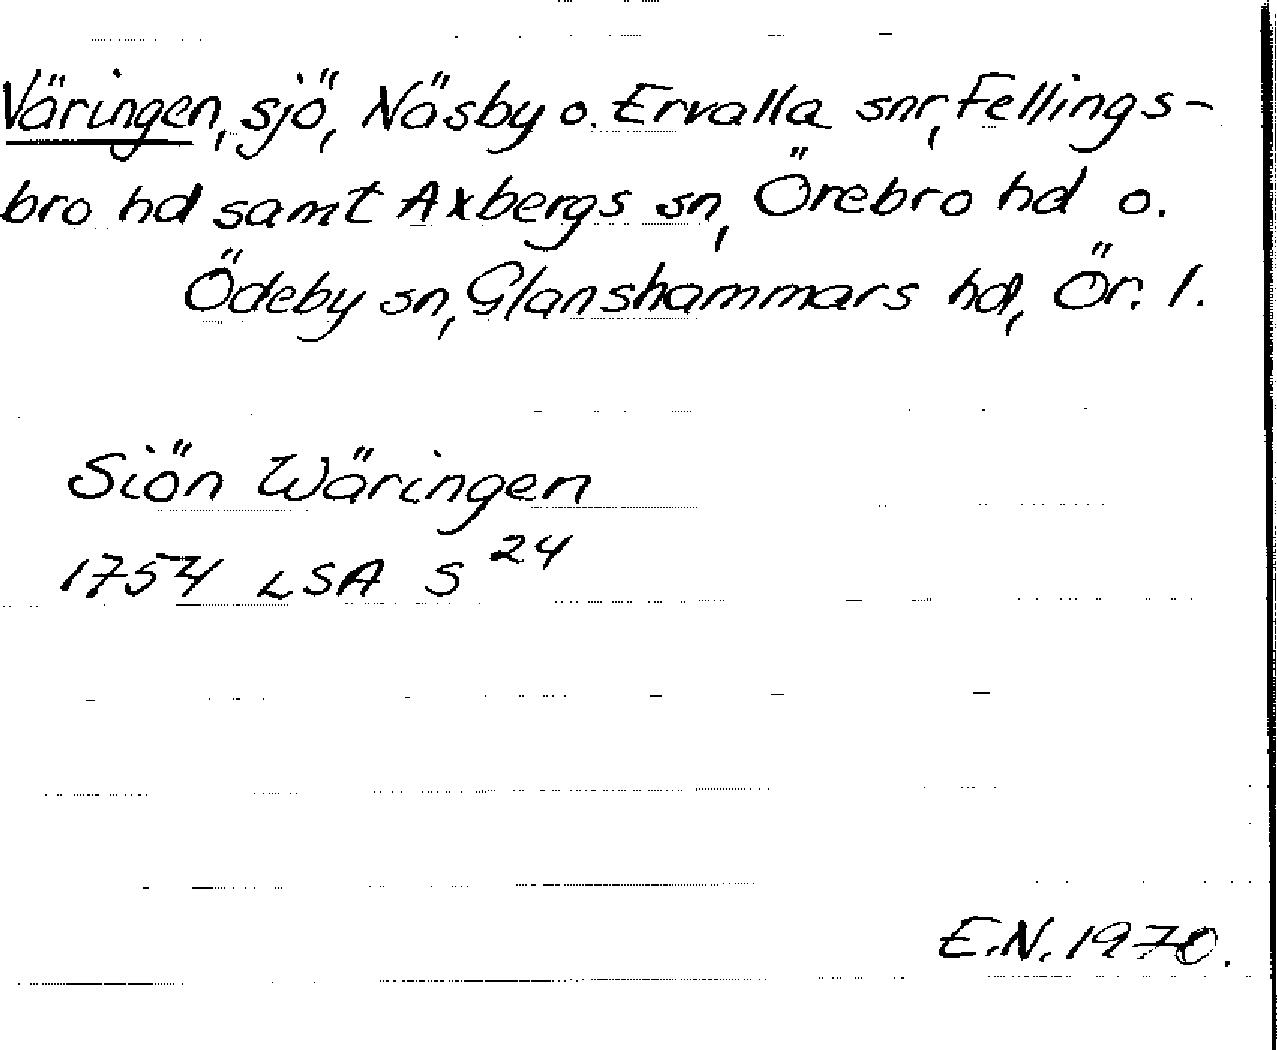 Väringen, sjö, Näsby o. Ervalla snr, Fellings-
bro hd samt Axbergs sn, Örebro hd o.
Ödeby sn, Glanshammars hd, Ör. l.
Siön Wäringen
1754 LSA S 24
E.N. 1970.